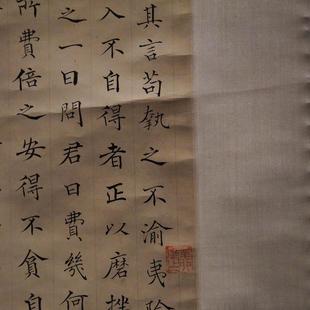 其言苟執之不渝夷險
入不自得者正以磨挫
之一日問君日費幾何
所費倍之安得不貪自